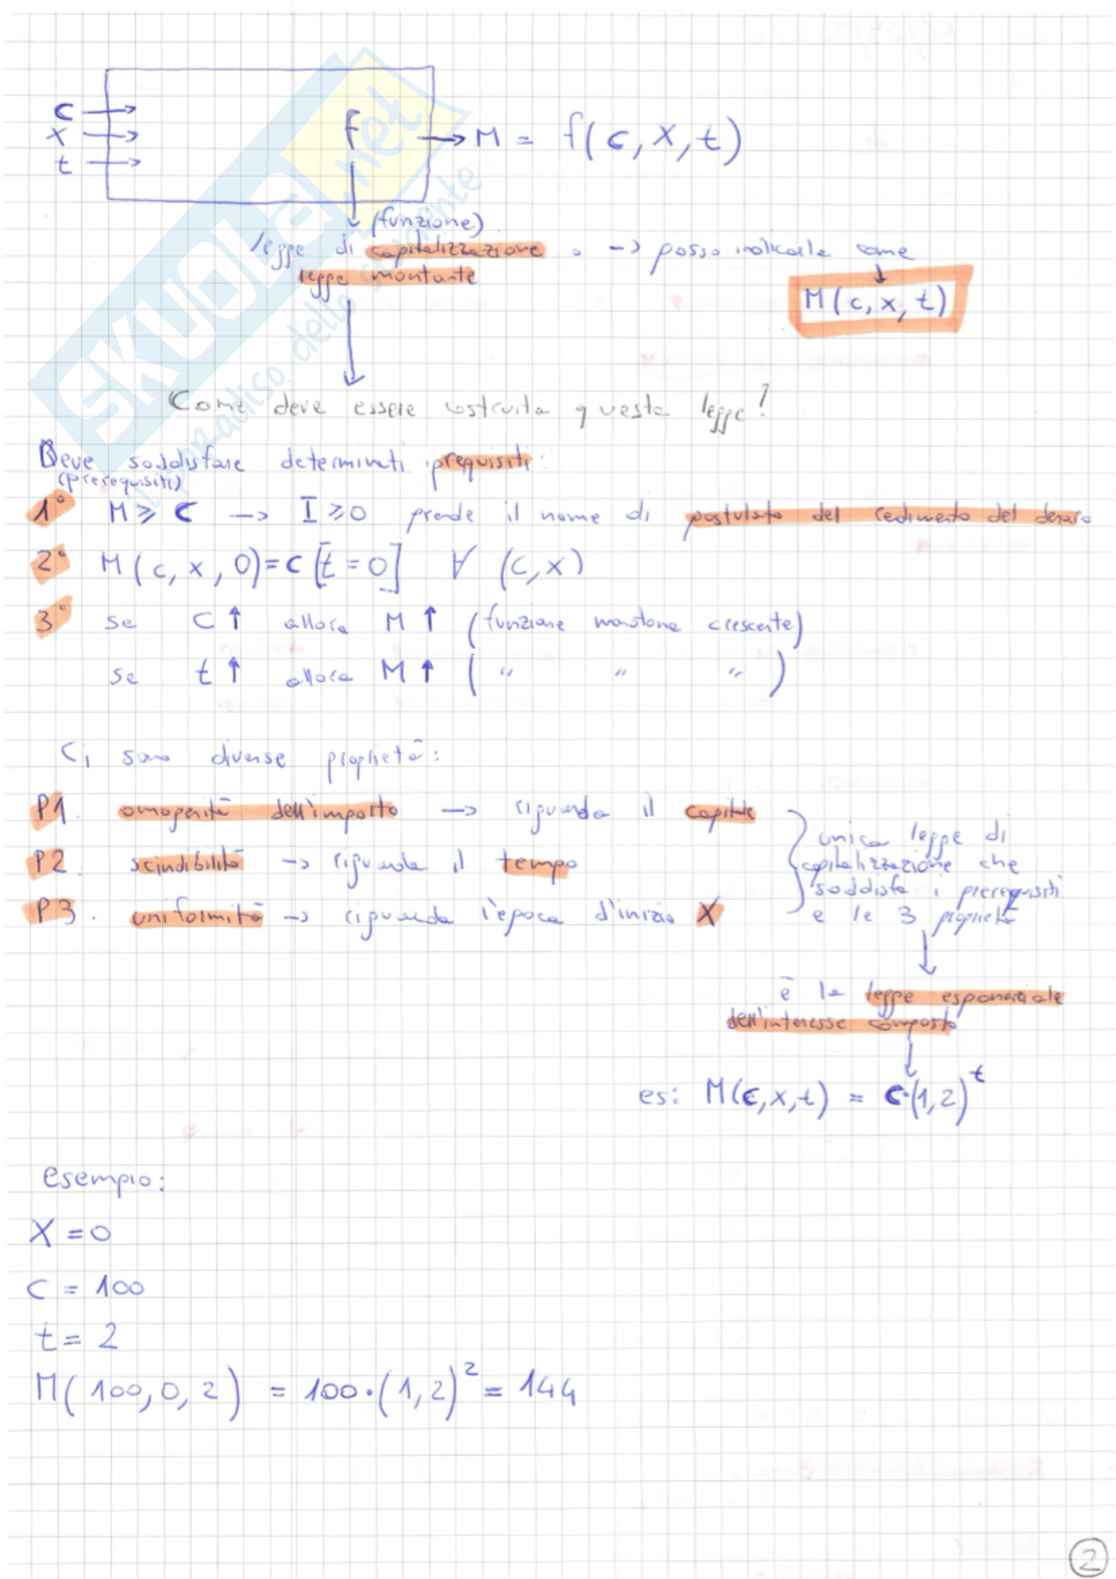 C
X
t
f
M = f(C, X, t)
(funzione)
legge di capitalizzazione o -> posso indicarla come
legge montante
M(c, x, t)
Come deve essere costruita questa legge?
Deve soddisfare determinati prequisiti:
(prerequisiti)
1° M ≥ C -> I ≥ 0 prende il nome di postulato del cedimento del denaro
2° M(c, x, 0) = C [t = 0] ∀ (c, x)
3° se C ↑ allora M ↑ (funzione monotona crescente)
se t ↑ allora M ↑ ( " " " )
Ci sono diverse proprietà:
P1. omogeneità dell'importo -> riguarda il capitale
P2. scindibilità -> riguarda il tempo
P3. uniformità -> riguarda l'epoca d'inizio X
unica legge di
capitalizzazione che
soddisfa i prerequisiti
e le 3 proprietà
è la legge esponenziale
dell'interesse composto
es: M(C, x, t) = C·(1,2)^t
esempio:
X = 0
C = 100
t = 2
M(100, 0, 2) = 100·(1,2)² = 144
2
SKUOLA.net